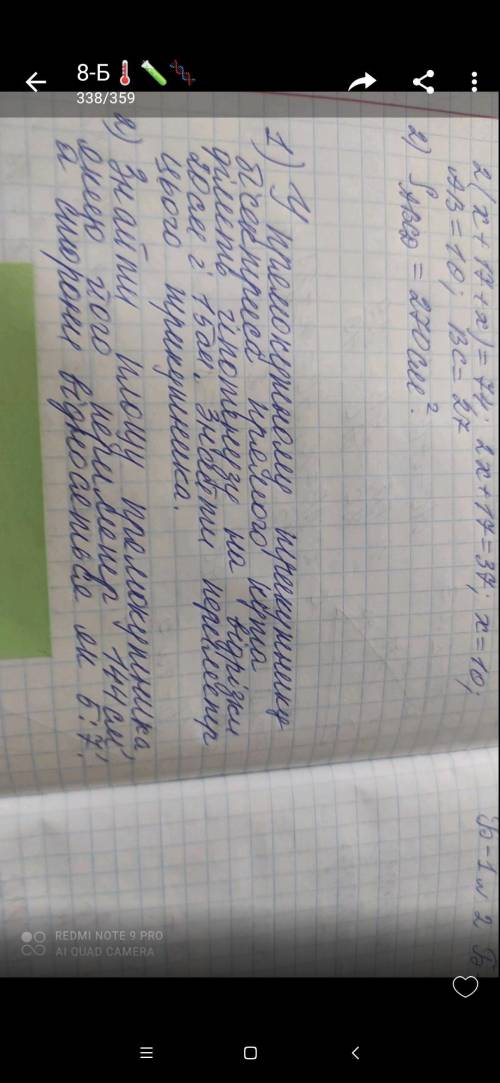 8-Б🌡️🧪🧬
338/359
2(x + 17 + x) = 74; 2x + 17 = 37; x = 10;
AB = 10; BC = 27
2) S ABCD = 270 см².
1) У прямокутному трикутнику
бісектриса прямого кута
ділить гіпотенузу на відрізки
20см і 15см. Знайти периметр
цього трикутника.
2) Знайти площу прямокутника
якщо його периметр 144см,
а сторони відносяться як 5:7.
REDMI NOTE 9 PRO
AI QUAD CAMERA